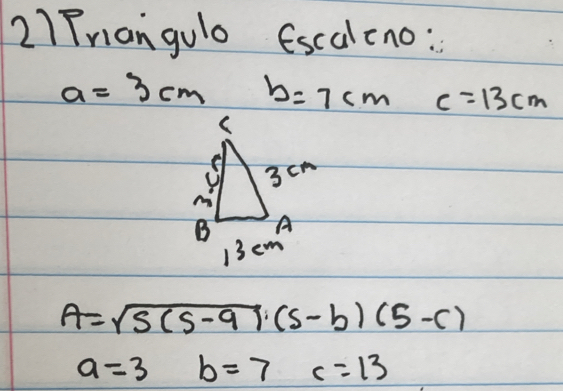 2) Triángulo Escaleno:
a = 3 cm b = 7 cm c = 13 cm
C
3 cm
B A
13 cm
A = √s(s-a).(s-b)(s-c)
a = 3 b = 7 c = 13